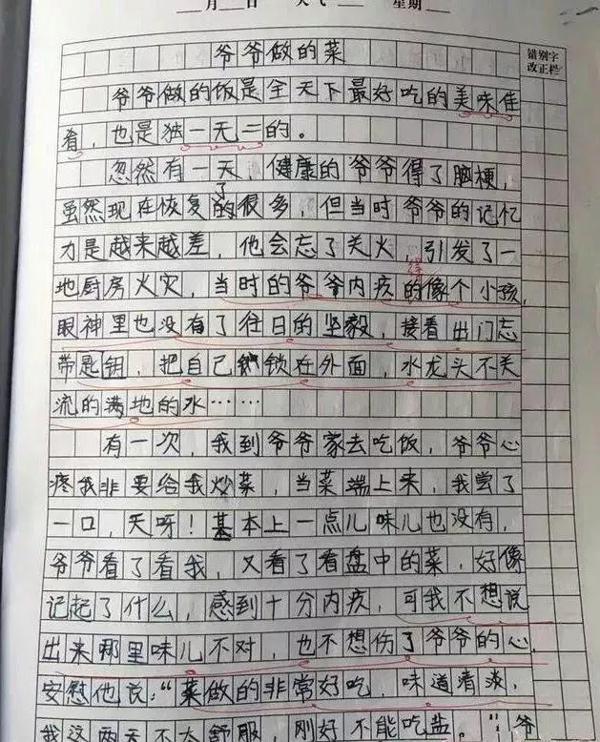 月 日 天气 星期
错别字
改正栏
爷爷做的菜
爷爷做的饭是全天下最好吃的美味佳
肴，也是独一无二的。
忽然有一天，健康的爷爷得了脑梗，
虽然现在恢复了很多，但当时爷爷的记忆
力是越来越差，他会忘了关火，引发了一
得
地厨房火灾，当时的爷爷内疚的像个小孩，
眼神里也没有了往日的坚毅，接着出门忘
带匙钥，把自己锁在外面，水龙头不关
流的满地的水……
有一次，我到爷爷家去吃饭，爷爷心
疼我非要给我炒菜，当菜端上来，我尝了
一口，天呀！基本上一点儿味儿也没有，
爷爷看了看我，又看了看盘中的菜，好像
记起了什么，感到十分内疚，可我不想说
出来那里味儿不对，也不想伤了爷爷的心，
安慰他说：“菜做的非常好吃，味道清淡，
我这两天不太舒服，刚好不能吃盐。”爷